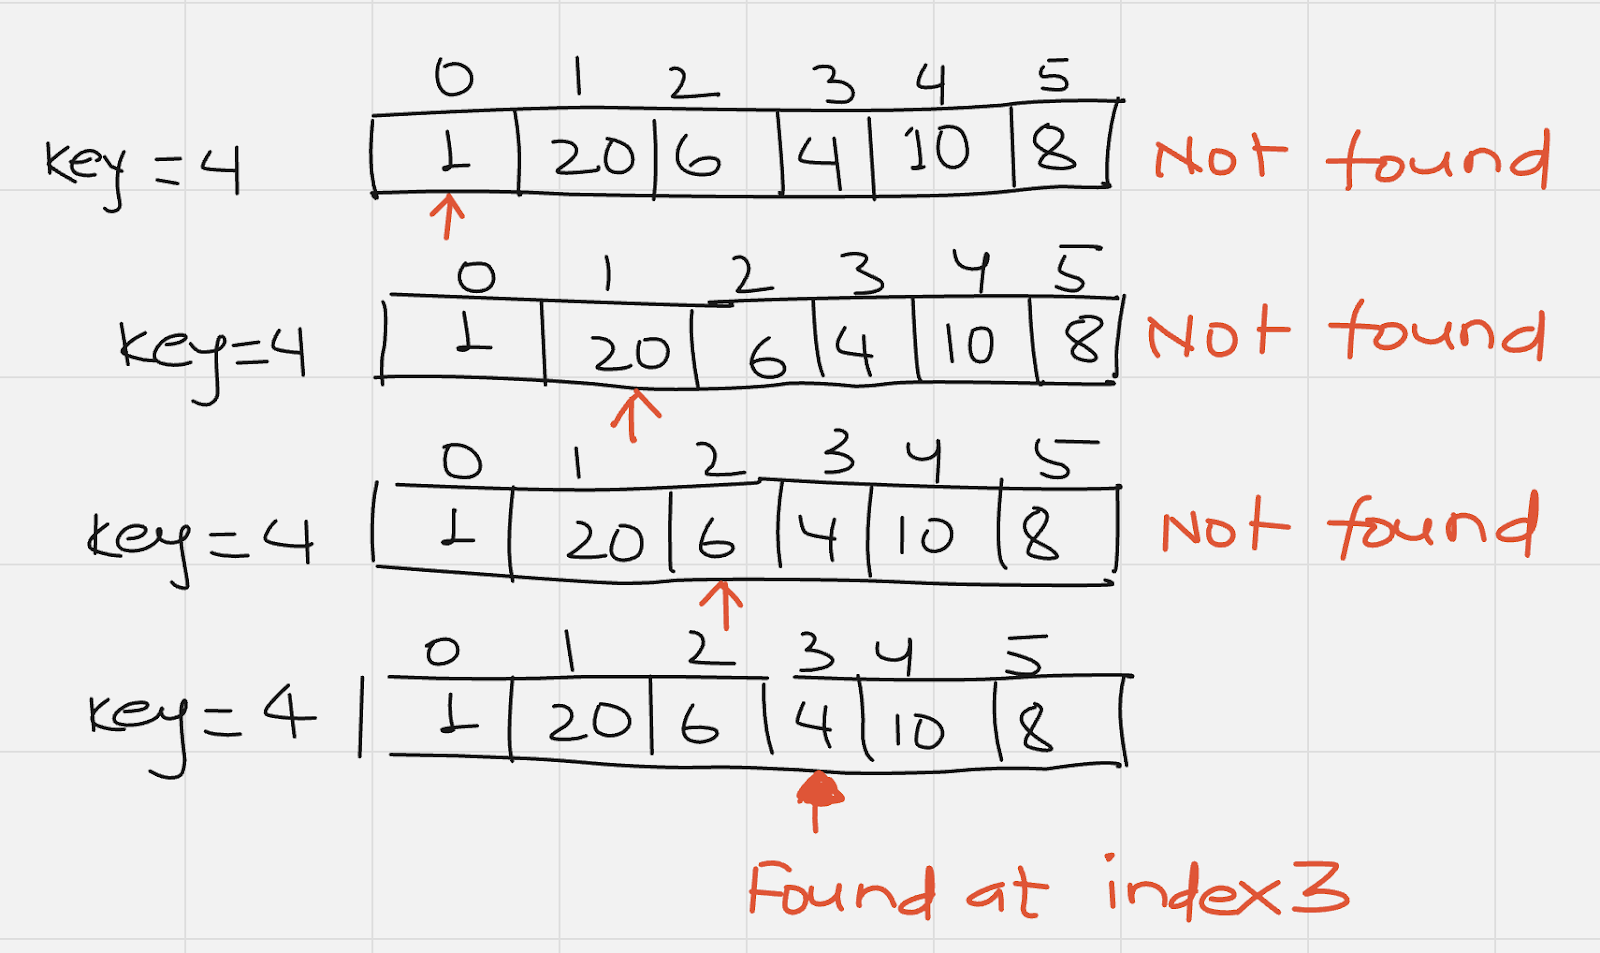 0 1 2 3 4 5
key = 4 1 20 6 4 10 8 Not found
0 1 2 3 4 5
key=4 1 20 6 4 10 8 Not found
0 1 2 3 4 5
key = 4 1 20 6 4 10 8 Not found
0 1 2 3 4 5
key = 4 1 20 6 4 10 8
Found at index 3